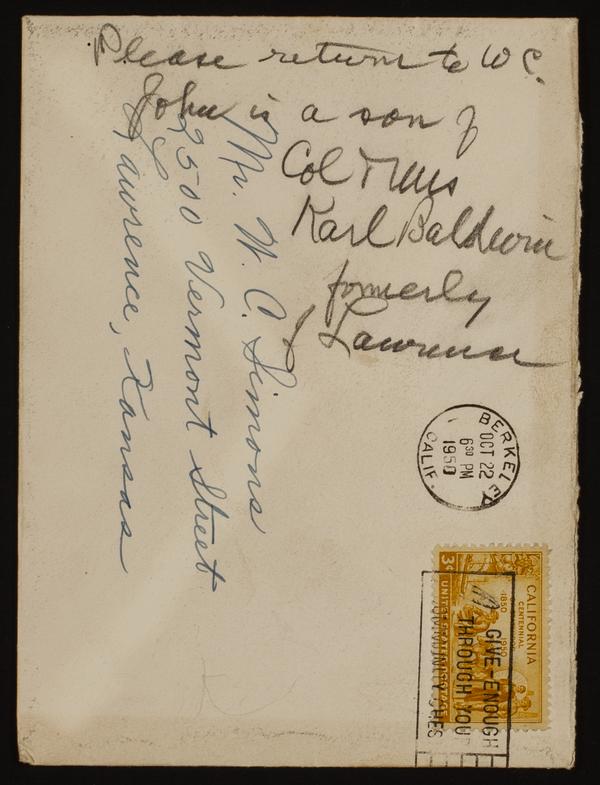 Please return to W C.
John is a son of
Col & Mrs
Karl Baldwin
formerly
of Lawrence
Mr. W. C. Simons
2500 Vermont Street
Lawrence, Kansas
BERKELEY
OCT 22
6 30 PM
1950
CALIF.
CALIFORNIA
CENTENNIAL
1850 1950
3¢
GIVE-ENOUGH
THROUGH YOUR